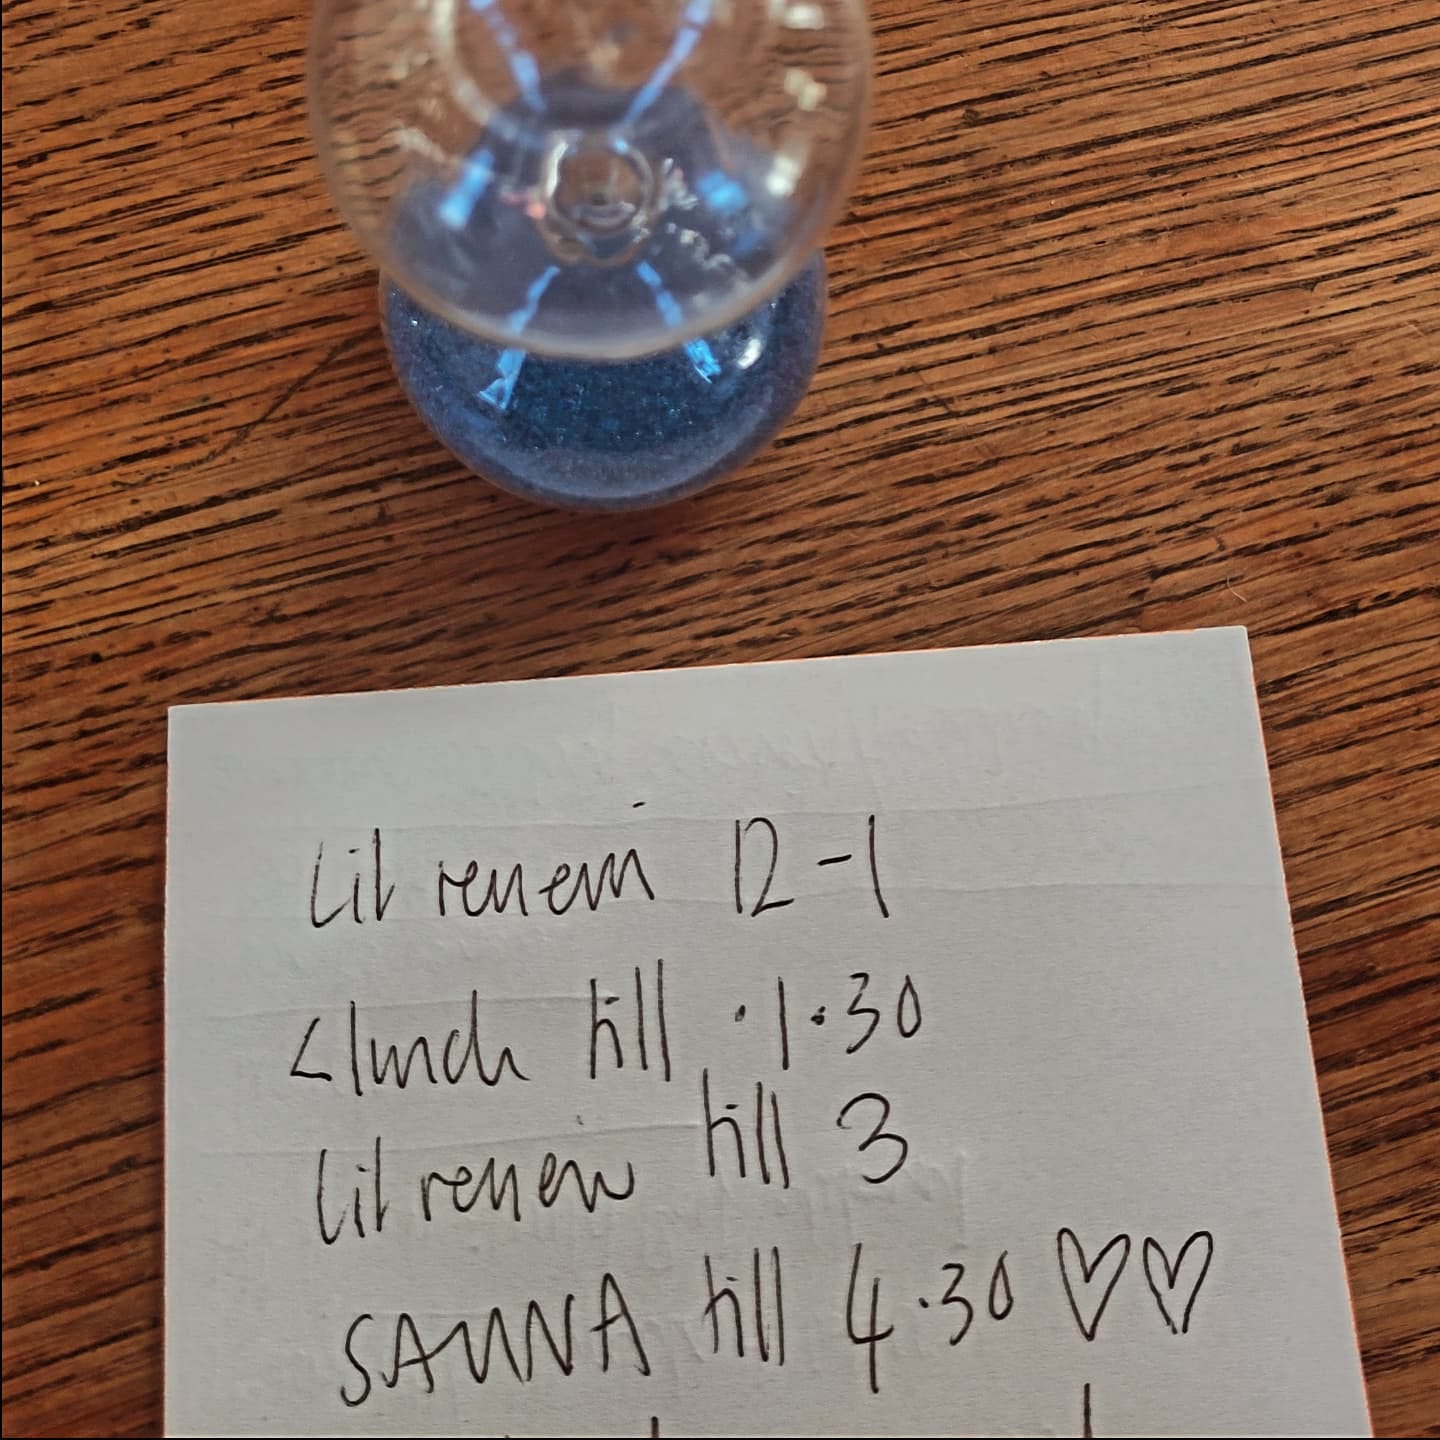 Lit review 12-1
<lunch till 1.30
Lit review till 3
SAUNA till 4.30 ♡♡